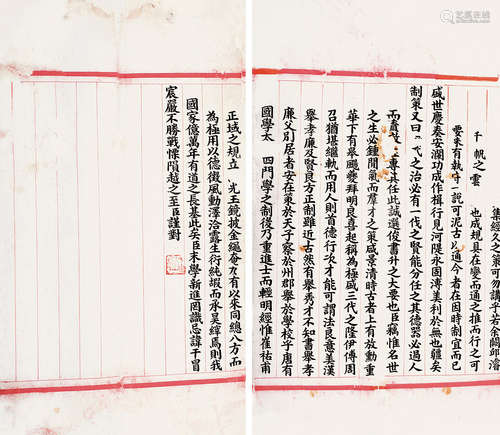 經久之策可勿講乎若余闕邱濬
千帆之雲 也成規具在變而通之推而行之可
要未有執守一說可泥古以通今者在因時制宜而已
盛世慶奏安瀾功成作楫行見河隄永固溥美利於無也疆矣
制策又曰代之治必有一代之賢能分任之其德器必過人
而責專其任此誠選俊書升之大要也臣竊惟名世
之生必鍾間氣而羣才之策咸景清時古者上有放勳重
華下有皋颺夔拜明良喜起稱為極盛三代之隆伊傅周
召猶堪繼軌而用人則首德行次才能可謂法良意美漢
舉孝廉及賢良方正制雖近古然有舉秀才不知書舉孝
廉父別居者安在策於天子察於州郡舉於學校乎唐有
國學太 四門學之制後乃重進士而輕明經惟崔祐甫
正域之規立 光玉鏡披金繩奮九有以來同總八方而
為極用以德徵風動澤洽露生衍純嘏而承昊縡焉則我
國家億萬年有道之長基此矣臣末學新進罔識忌諱干冒
宸嚴不勝戰慄隕越之至臣謹對